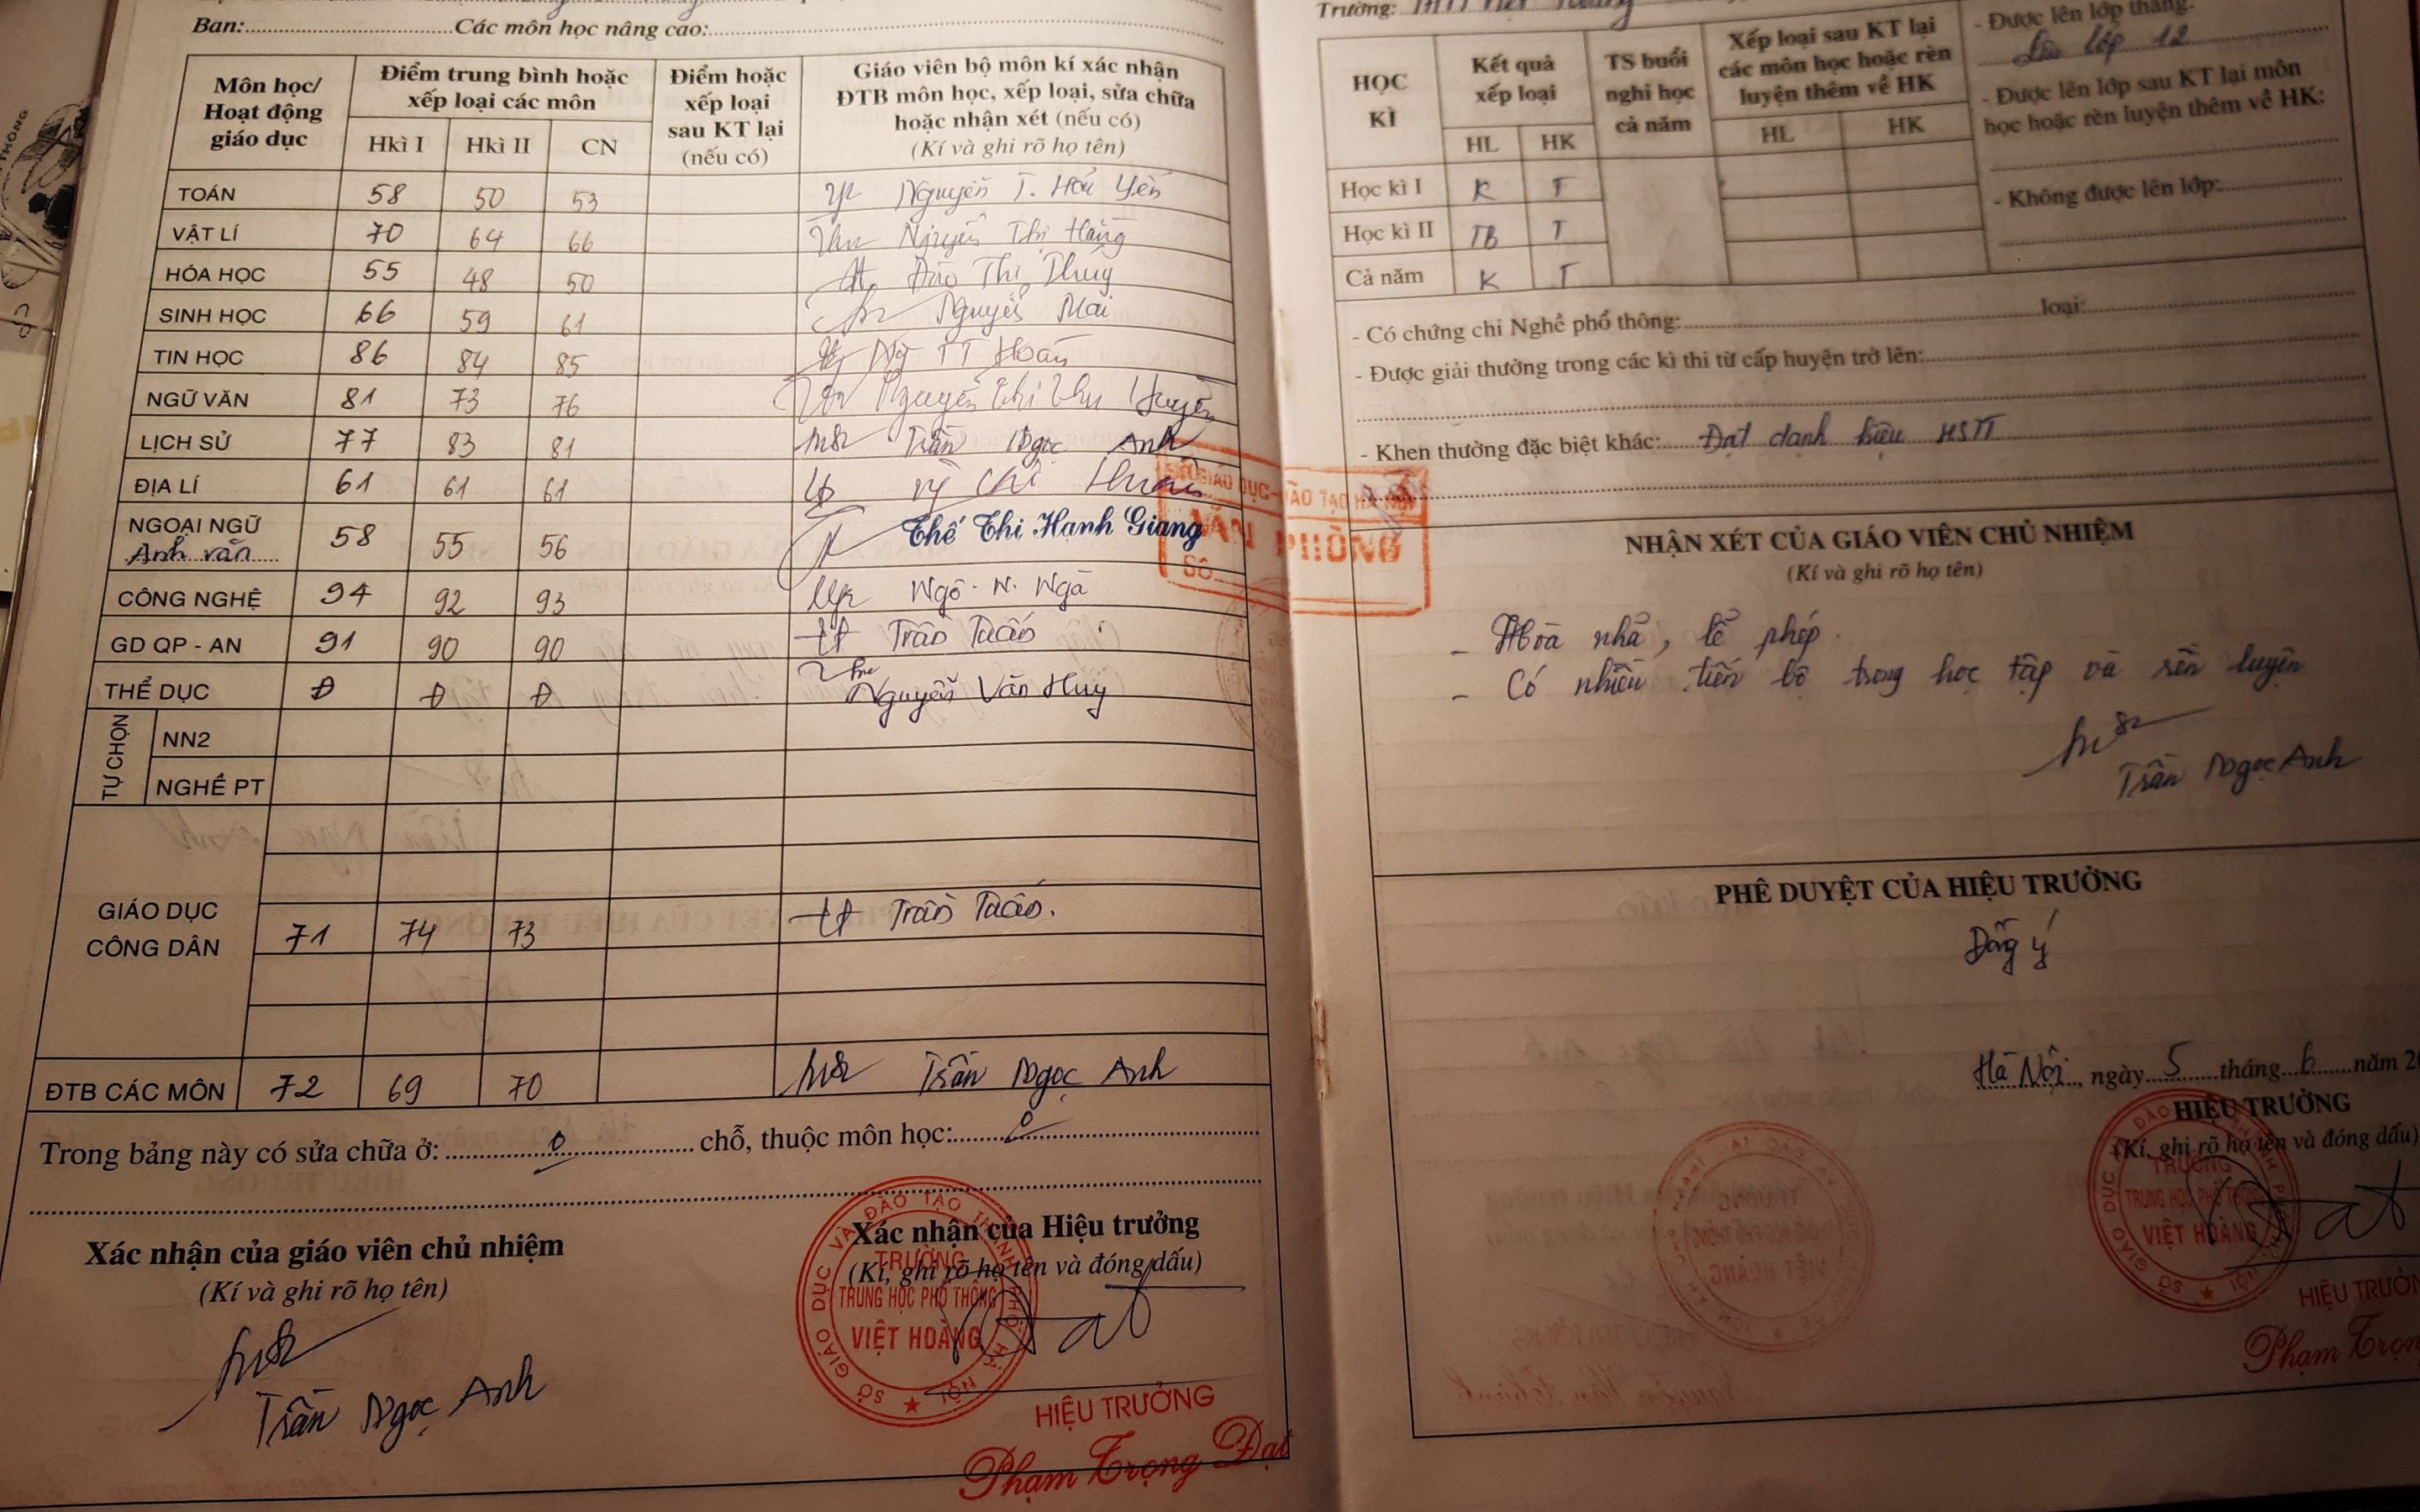 Ban: Các môn học nâng cao:
Môn học/ Hoạt động giáo dục
Điểm trung bình hoặc xếp loại các môn
Hkì I Hkì II CN
Điểm hoặc xếp loại sau KT lại (nếu có)
Giáo viên bộ môn kí xác nhận ĐTB môn học, xếp loại, sửa chữa hoặc nhận xét (nếu có) (Kí và ghi rõ họ tên)
TOÁN 58 50 53 Nguyễn T. Hải Yến
VẬT LÍ 70 64 66 Nguyễn Thị Hằng
HÓA HỌC 55 48 50 Đào Thị Thuý
SINH HỌC 66 59 61 Nguyễn Mai
TIN HỌC 86 84 85 TT Hoàn
NGỮ VĂN 81 73 76 Nguyễn Thị Thu Huyền
LỊCH SỬ 77 83 81 Trần Ngọc Anh
ĐỊA LÍ 61 61 61
NGOẠI NGỮ
Anh văn 58 55 56 Thế Thị Hạnh Giang
CÔNG NGHỆ 94 92 93 Ngô. N. Nga
GD QP - AN 91 90 90 Trần Tuấn
THỂ DỤC Đ Đ Đ Nguyễn Văn Huy
TỰ CHỌN
NN2
NGHỀ PT
GIÁO DỤC
CÔNG DÂN 71 74 73 Trần Tuấn.
ĐTB CÁC MÔN 72 69 70 Trần Ngọc Anh
Trong bảng này có sửa chữa ở: 0 chỗ, thuộc môn học: 0
Xác nhận của giáo viên chủ nhiệm
(Kí và ghi rõ họ tên)
Trần Ngọc Anh
Xác nhận của Hiệu trưởng
(Kí, ghi rõ họ tên và đóng dấu)
SỞ GIÁO DỤC VÀ ĐÀO TẠO THÀNH PHỐ HÀ NỘI
TRƯỜNG
TRUNG HỌC PHỔ THÔNG
VIỆT HOÀNG
HIỆU TRƯỞNG
Phạm Trọng Đạt
SỞ GIÁO DỤC-ĐÀO TẠO HÀ NỘI
VĂN PHÒNG
SỐ
Trường:
HỌC KÌ
Kết quả xếp loại
HL HK
TS buổi nghỉ học cả năm
Xếp loại sau KT lại các môn học hoặc rèn luyện thêm về HK
HL HK
Học kì I K T
Học kì II TB T
Cả năm K T
- Được lên lớp thẳng:
Lên lớp 12
- Được lên lớp sau KT lại môn
học hoặc rèn luyện thêm về HK:
- Không được lên lớp:
- Có chứng chỉ Nghề phổ thông: loại:
- Được giải thưởng trong các kì thi từ cấp huyện trở lên:
- Khen thưởng đặc biệt khác: Đạt danh hiệu HSTT
NHẬN XÉT CỦA GIÁO VIÊN CHỦ NHIỆM
(Kí và ghi rõ họ tên)
- Hòa nhã, lễ phép.
- Có nhiều tiến bộ trong học tập và rèn luyện
Trần Ngọc Anh
PHÊ DUYỆT CỦA HIỆU TRƯỞNG
Đồng ý
Hà Nội, ngày 5 tháng 6 năm 2
HIỆU TRƯỞNG
(Kí, ghi rõ họ tên và đóng dấu)
TRƯỜNG
TRUNG HỌC PHỔ THÔNG
VIỆT HOÀNG
HIỆU TRƯỞN
Phạm Trọn